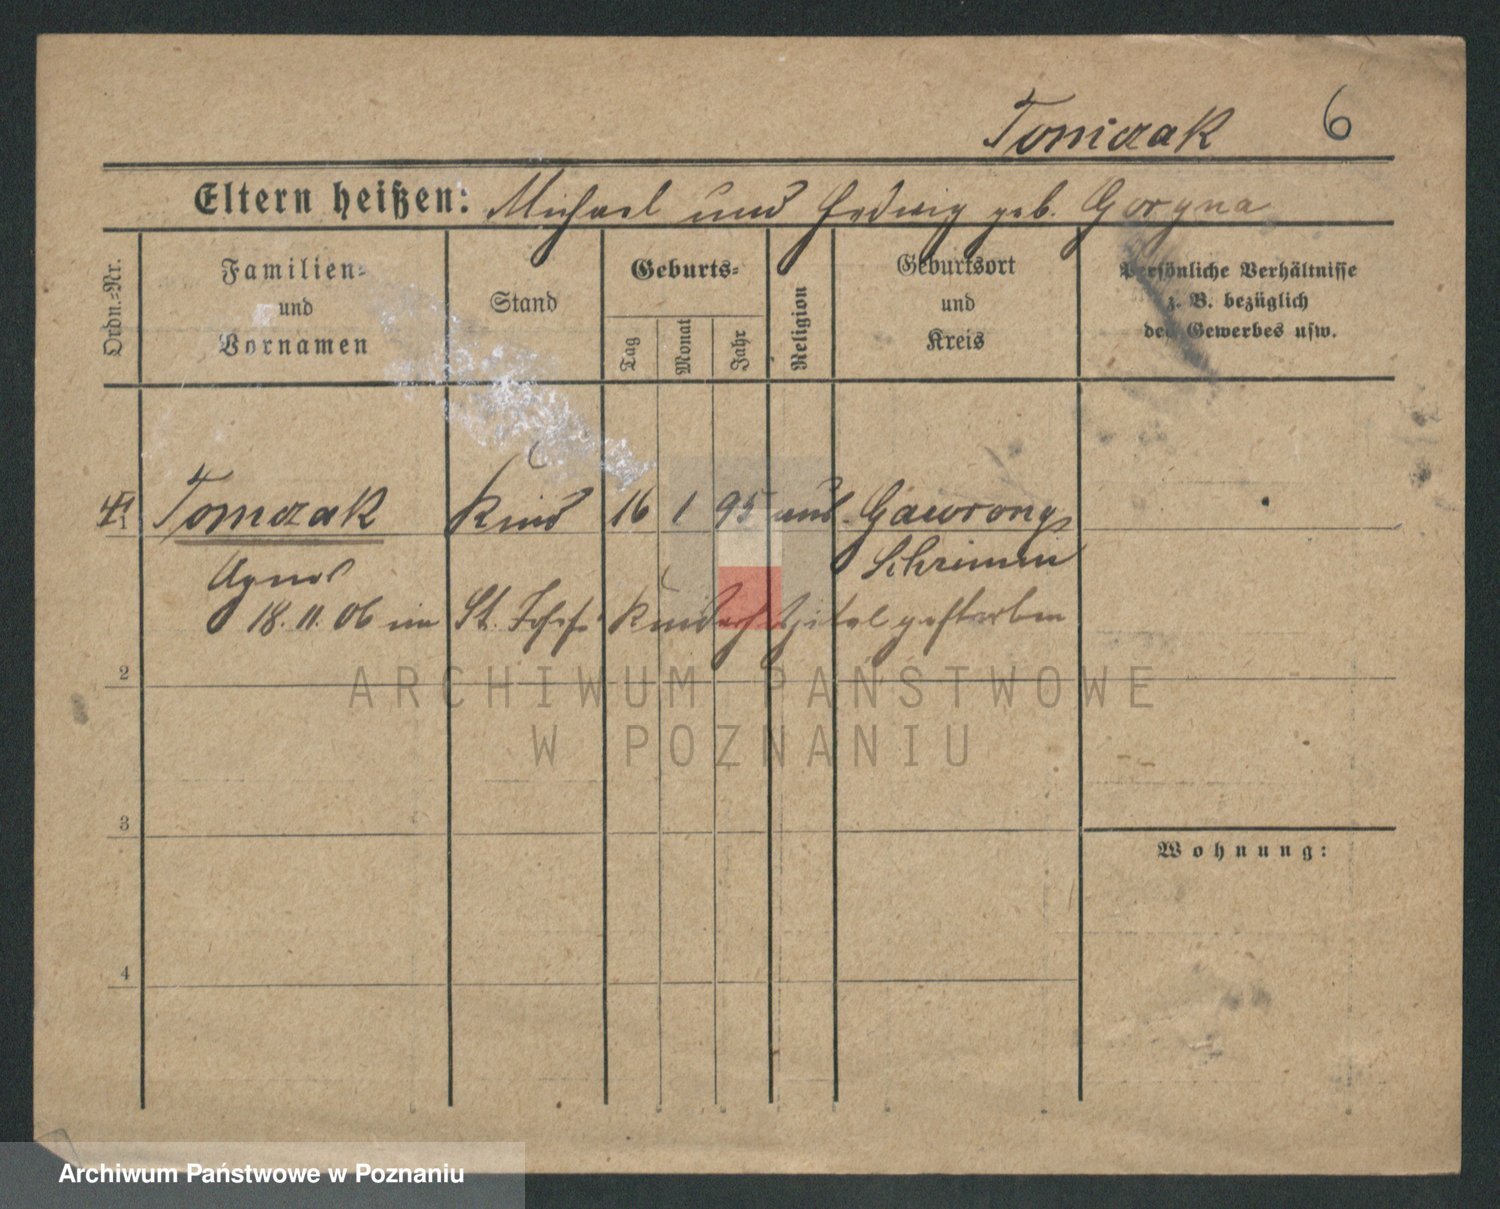 Tomczak 6
Eltern heißen: Michael und Hedwig geb. Goryna
Ordn.=Nr.
Familien=
und
Vornamen
Stand
Geburts=
Tag
Monat
Jahr
Religion
Geburtsort
und
Kreis
Persönliche Verhältnisse
z. B. bezüglich
des Gewerbes usw.
1 Tomczak Kind 16 1 95 Gawrony
Agnes Schrimm
18. 11. 06 im St. Josefs Kinderhspital gestorben
2
3
4
Wohnung:
ARCHIWUM PAŃSTWOWE
W POZNANIU
Archiwum Państwowe w Poznaniu